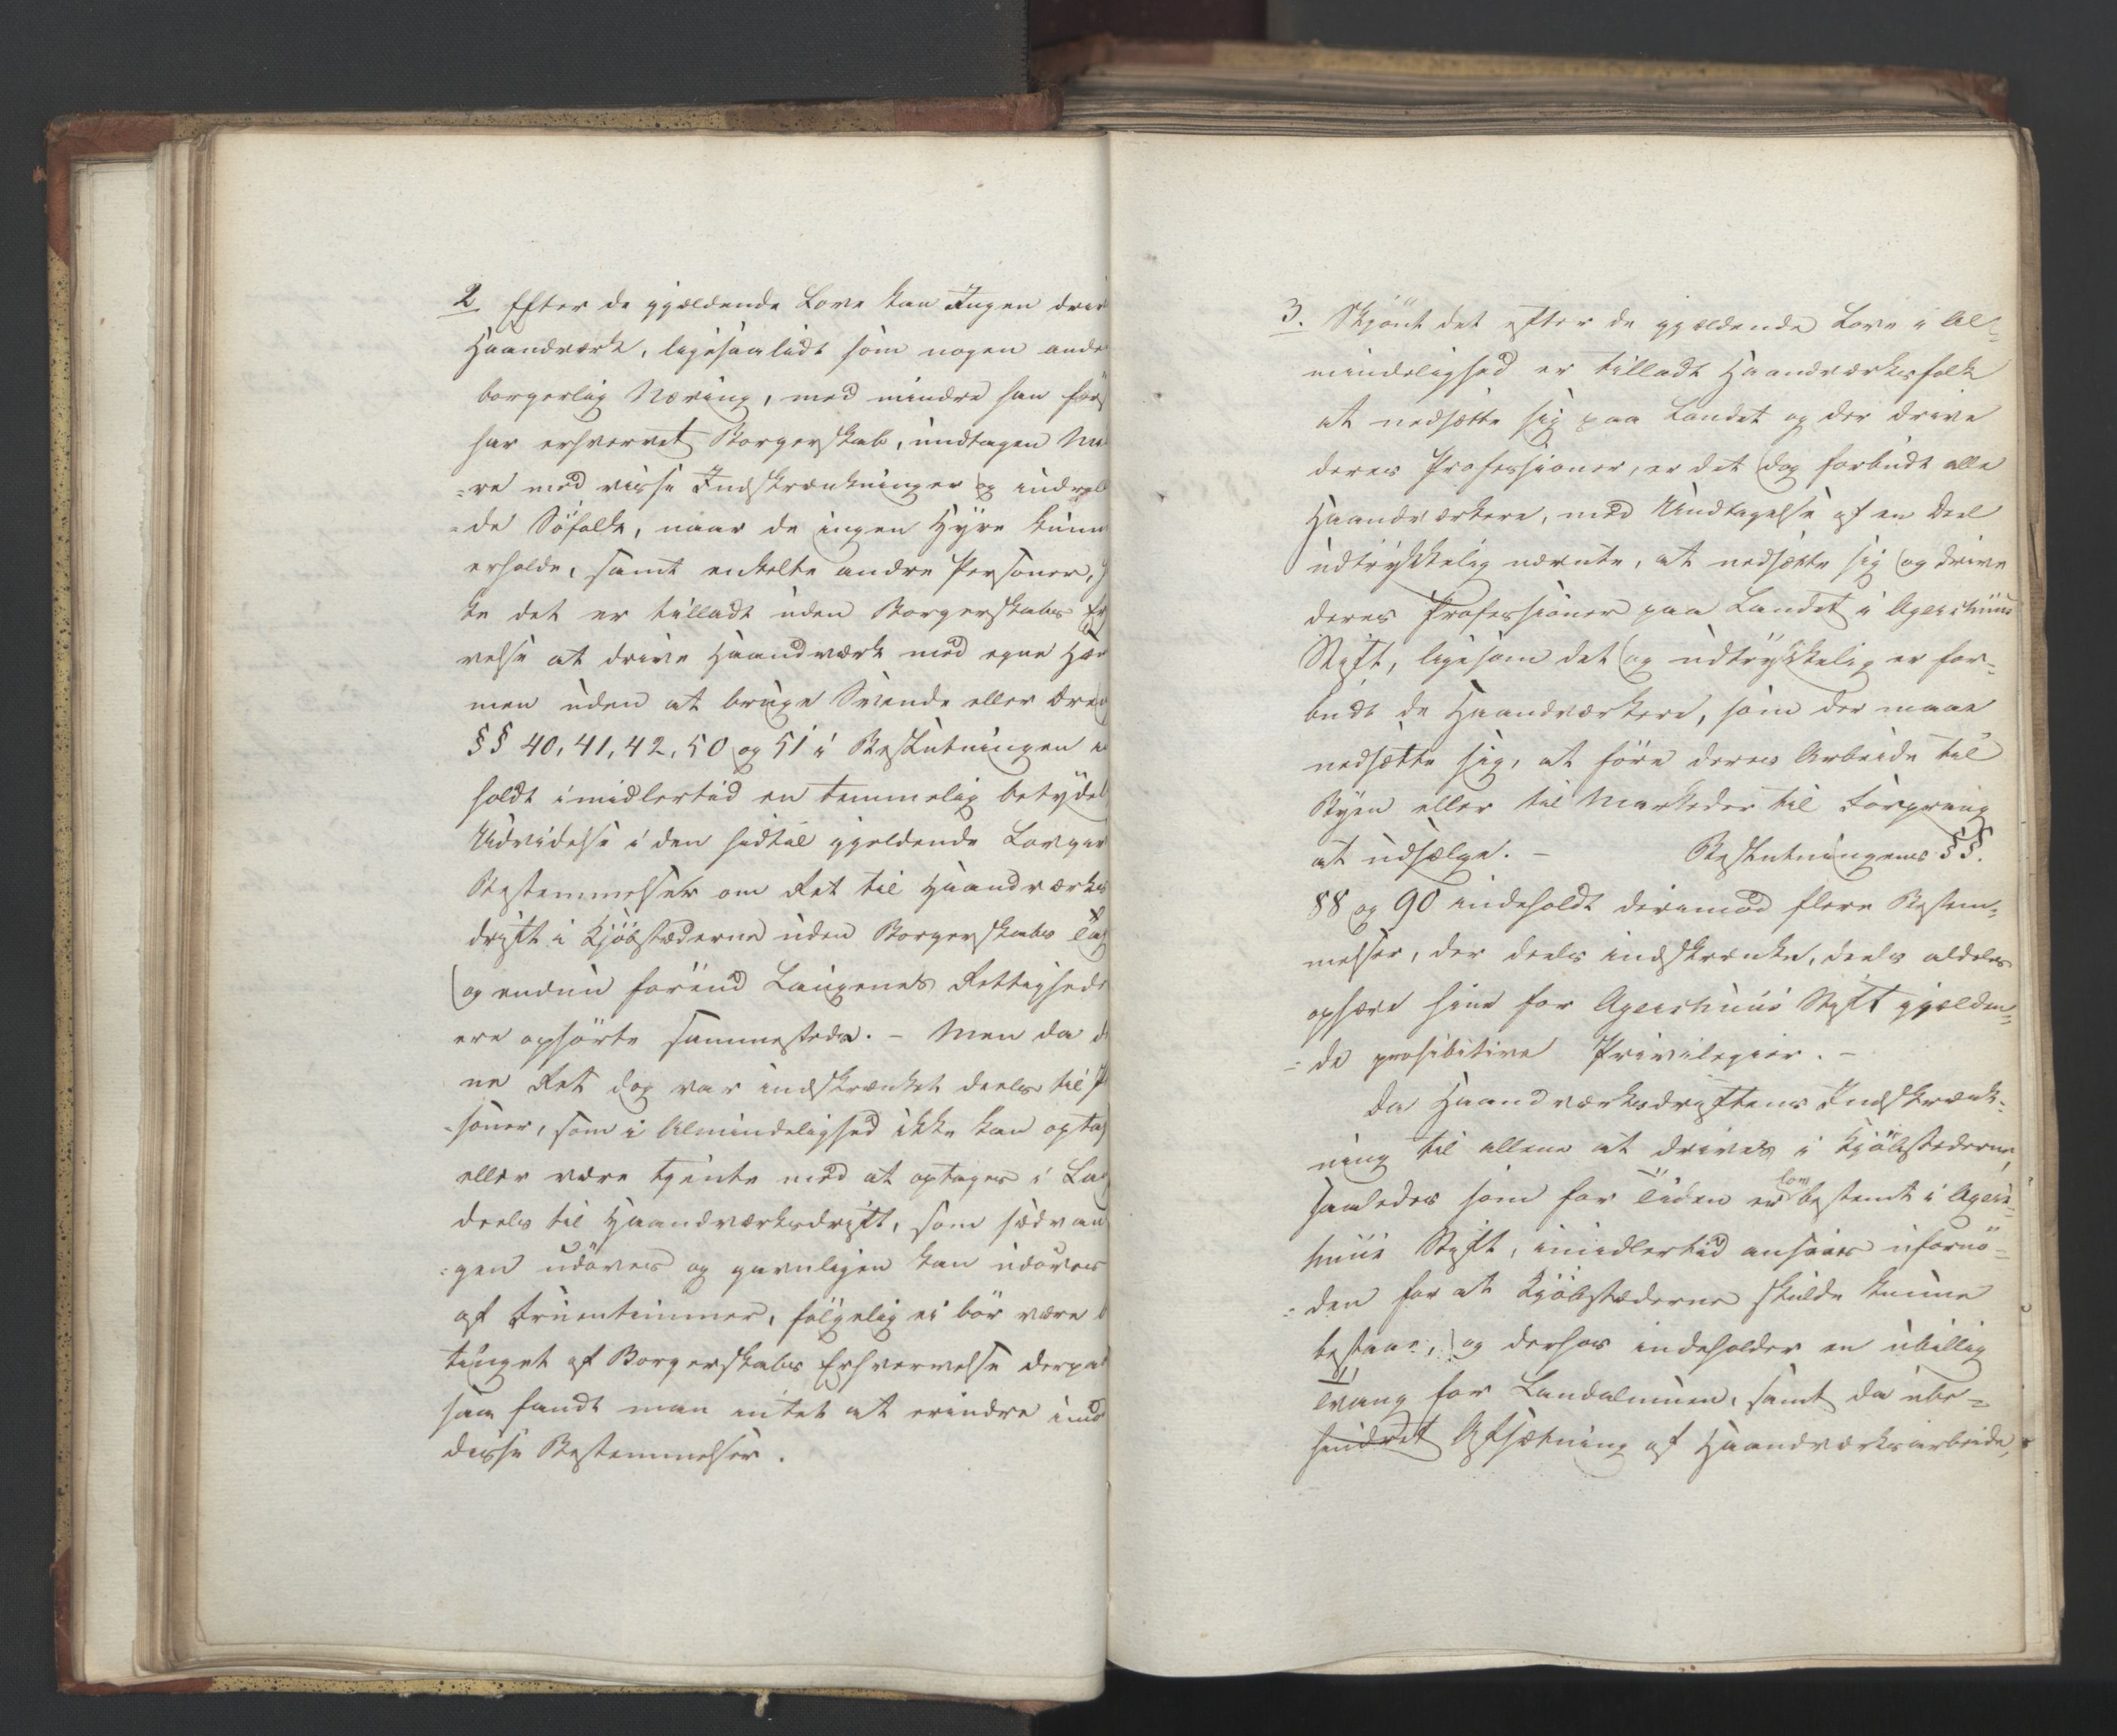 2. Efter de gjældende Love kan Ingen driv
Haandværk, ligesaalidt som nogen ande
borgerlig Næring, med mindre han förs
har erhvervet Borgerskab, undtagen
=re med visse Indskrænkninger og indrul
=de Söfolk, naar de ingen Hyre kunn
erholde, samt enkelte andre Personer,
ke det er tilladt uden Borgerskabs Er
velse at drive Haandværk med egne Hæn
men uden at bruge Svende eller Dren
§§ 40, 41, 42, 50 og 51 i Beslutningen in
holdt imidlertid en temmelig betydel
Udvidelse i den hidtil gjeldende Lovgiv
Bestemmelser om Ret til Haandværks
drift i Kjöbstæderne uden Borgerskabs Tag
og endnu förend Laugenes Rettighede
ere ophörte sammesteds. – Men da de
ne Ret dog var indskrænket deels til P
=soner, som i Almindelighed ikke kan optag
eller være tjente med at optages i Lau
deels til Haandværksdrift, som sædvan
=gen udöves og gavnligen kan udöves
af Fruentimmer, fölgelig ei bör være b
tinget af Borgerskabs Erhvervelse derpaa
saa fandt man intet at erindre imod
disse Bestemmelser.
3. Skjönt det efter de gjældende Love i Al=
mindelighed er tilladt Haandværksfolk
at nedsætte sig paa Landet og der drive
deres Professioner, er det dog forbudt alle
Haandværkere, med Undtagelse af en Deel
udtrykkelig nævnte, at nedsætte sig og drive
deres Professioner paa Landet i Agershuus
Stift, ligesom det og udtrykkelig er for=
budt de Haandværkere, som der maae
nedsætte sig, at före deres Arbeide til
Byen eller til Markeder til Torgs
at udsælge. – Beslutningens §§.
88 og 90 indeholdt derimod flere Bestem=
melser, der deels indskrænke, deels aldeles
ophæve hine for Agershuus Stift gjælden=
=de prohibitive Privilegier. –
Da Haandværksdriftens Indskrænk=
ning til allene at drives i Kjöbstederne,
saaledes som for Tiden er som bestemt i Agers=
huus Stift, imidlertid ansees ufornö=
=den for at Kjöbstæderne skulde kunne
bestaae, og derhos indeholder en ubillig
Tvang for Landalmuen, samt da ube=
hindret Afsætning af Haandværksarbeide,